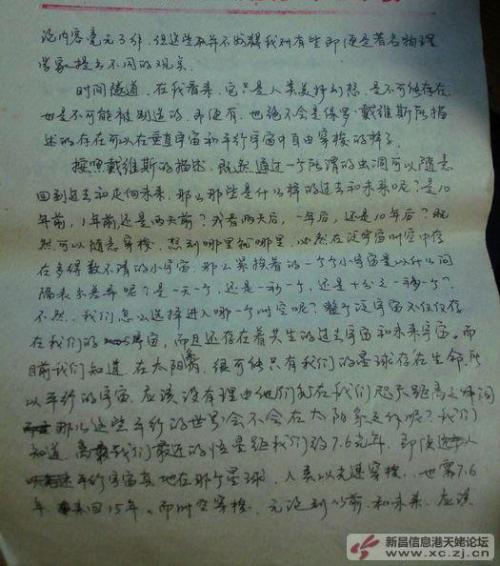 论内容毫无了解,但这些故并不妨碍我对有些即便是著名物理
学家提出不同的观点。
时间隧道,在我看来,它只是人类美好幻想,是不可能存在
也是不可能被制造的,即便有,也绝不会是保罗·戴维斯所描
述的存在可以在垂直宇宙和平行宇宙中自由穿梭的样子。
按照戴维斯的描述,既然通过一个所谓的虫洞可以随意
回到过去和走向未来,那么那些是什么样的过去和未来呢?是10
年前,1年前还是两天前?或者两天后,一年后,还是10年后?既
然可以随意穿梭,想到哪里就哪里,必然在该宇宙时空中存
在多得数不清的小宇宙,那么紧挨着的一个个小宇宙是以什么间
隔表示差异呢?是一天一个,还是一秒一个,还是十分之一秒一个?
不然,我们怎么选择进入哪一个时空呢?整个该宇宙不仅仅存
在我们的宇宙,而且还存在着共生的过去宇宙和未来宇宙。而
目前我们知道,在太阳系,很可能只有我们的星球存在生命,所
以平行的宇宙,应该没有理由他们存在我们咫尺距离之间
那么这些平行的世界会不会在太阳系之外呢?我们
知道,离我们最近的恒星距我们约7.6光年,即便
平行宇宙真地在那个星球,人类以光速穿梭,也需7.6
年,来回15年。而时空穿梭,无论到以前和未来,应该
新昌信息港天姥论坛
www.xc.zj.cn